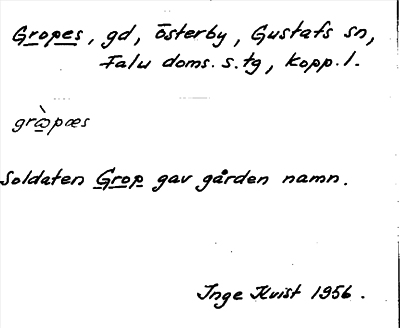 Gropes, gd, Österby, Gustafs sn,
Falu doms. s. tg, Kopp. l.
grὼpæs
Soldaten Grop gav gården namn.
Inge Kvist 1956.